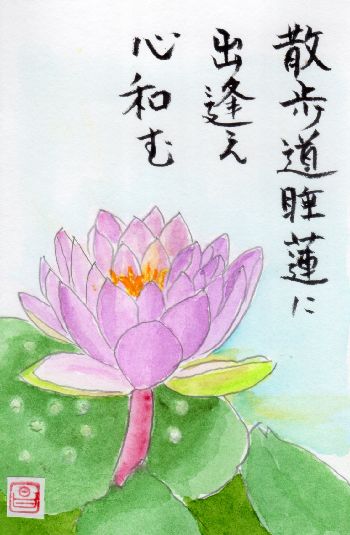 散歩道睡蓮に
出逢え
心和む